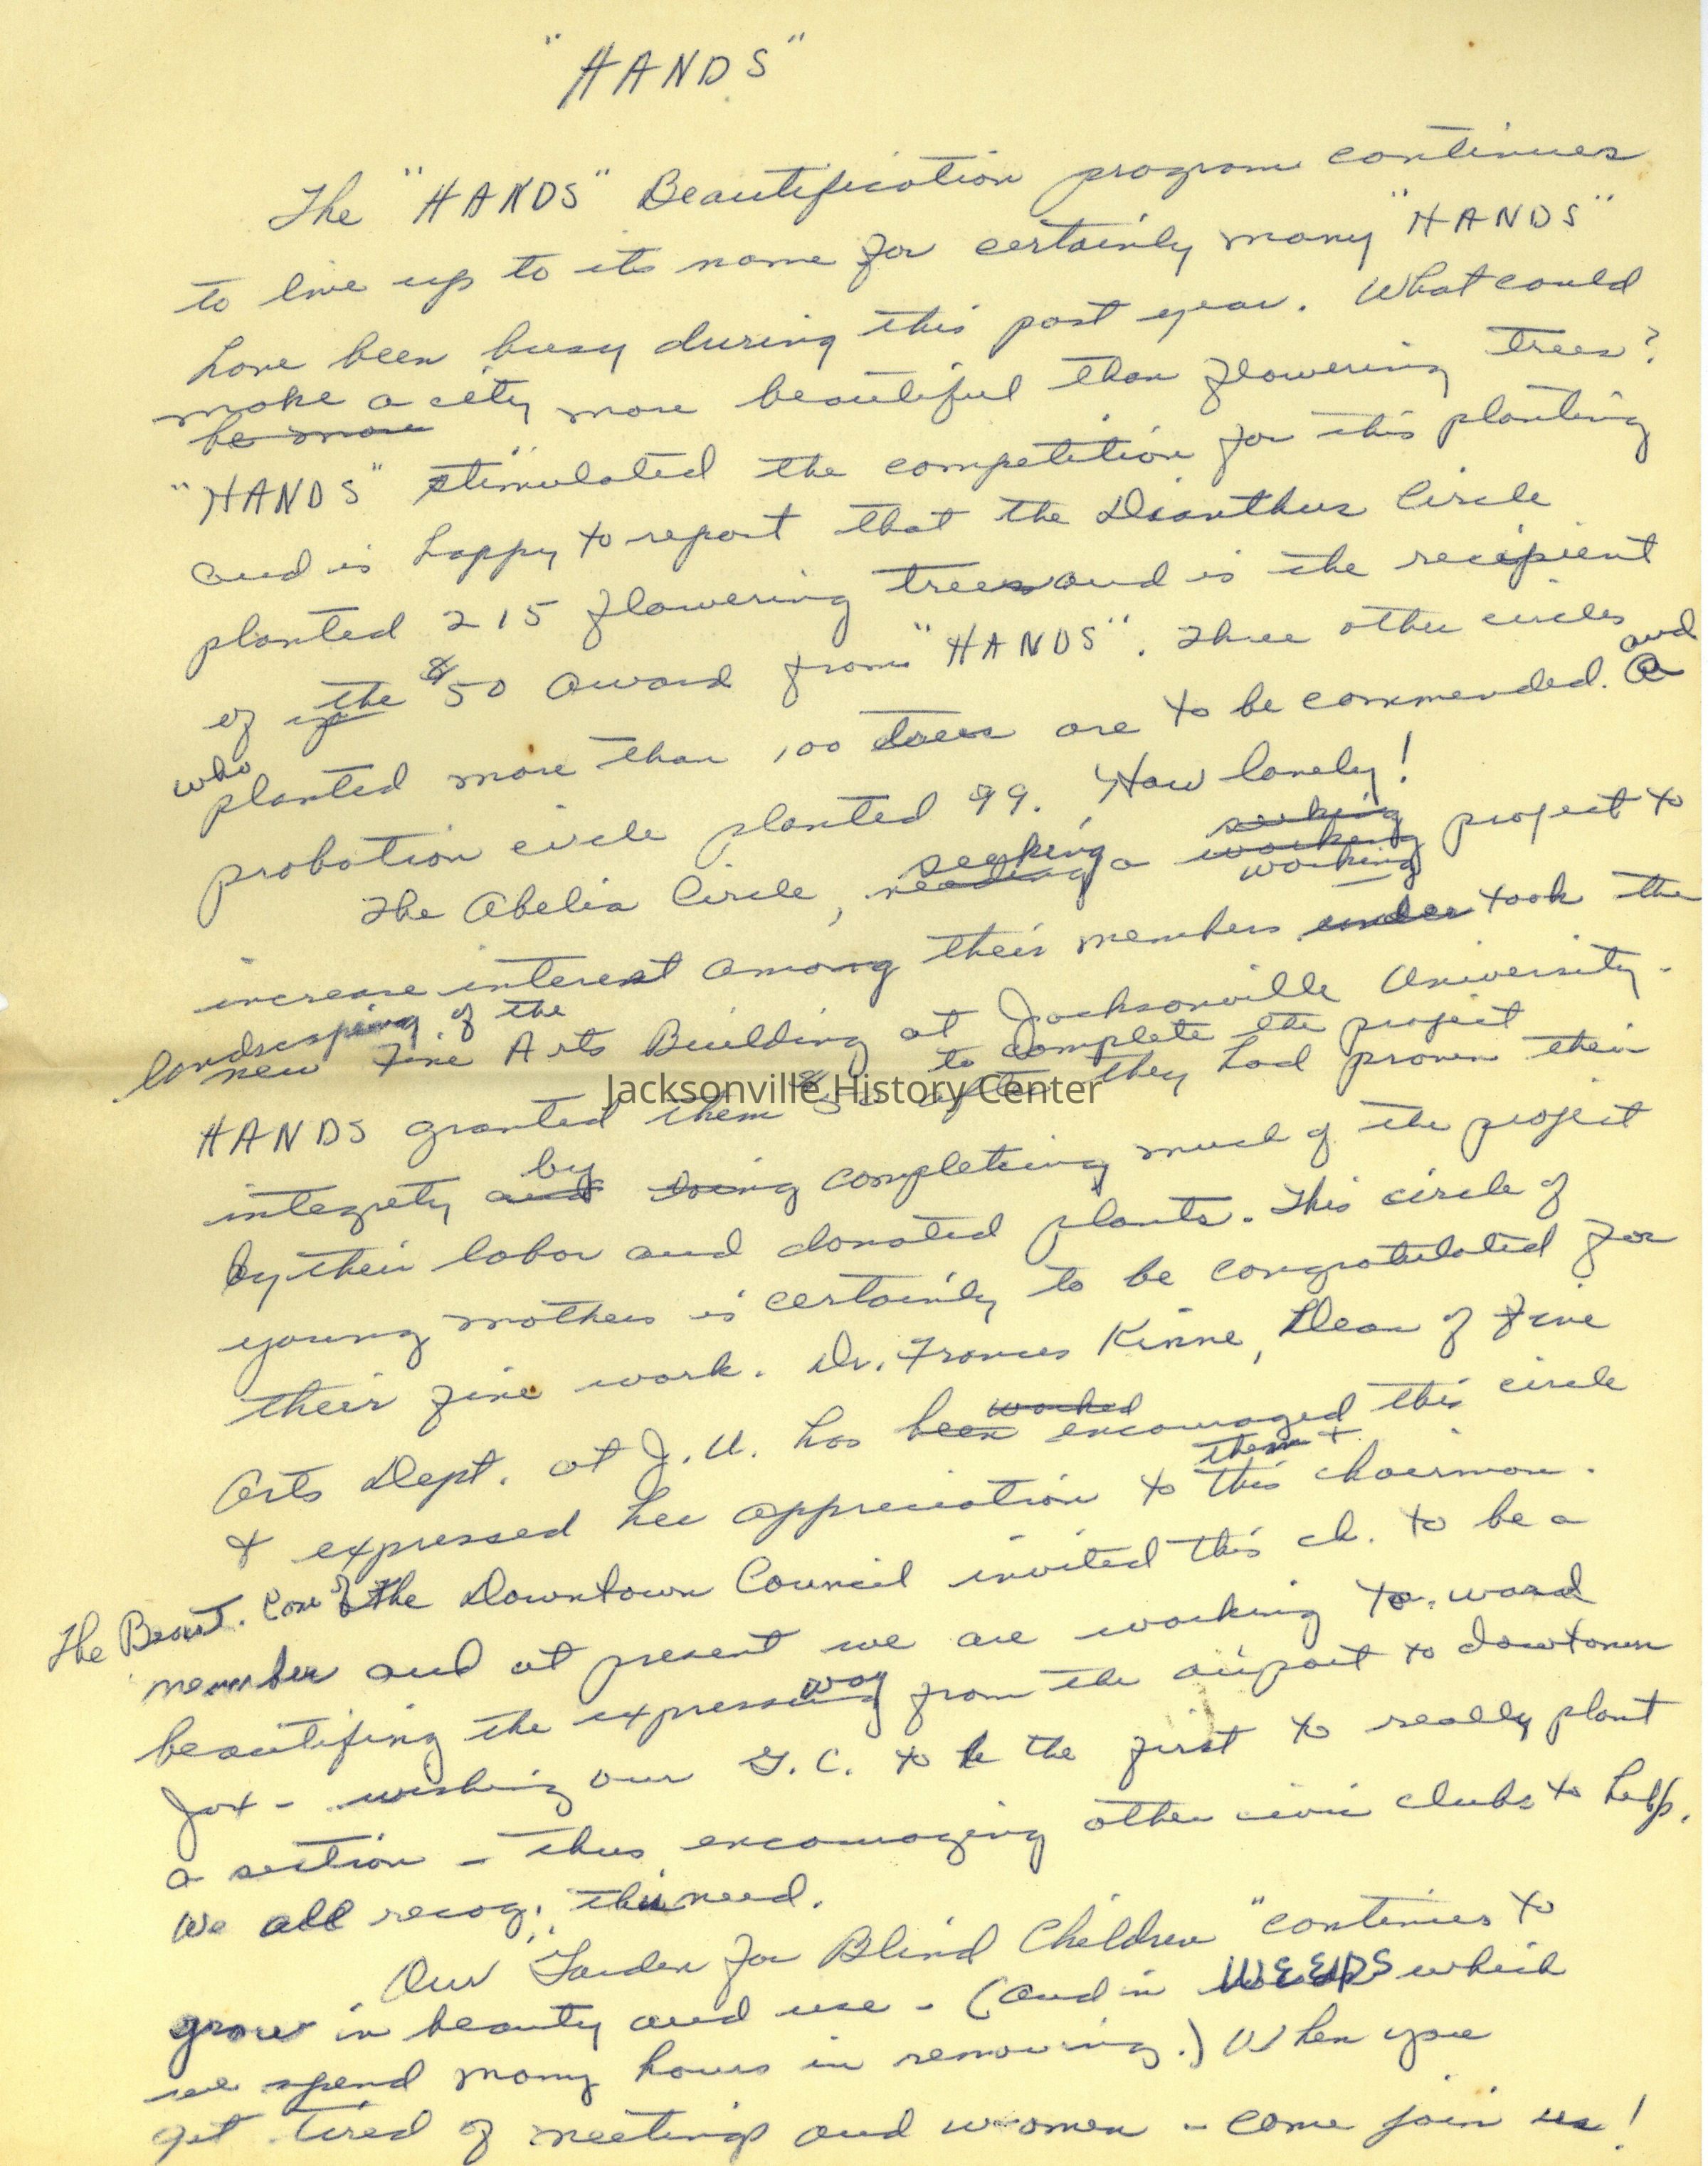 "HANDS"
The "HANDS" Beautification program continues
to live up to its name for certainly many "HANDS"
have been busy during this past year. What could
make a city more beautiful than flowering trees?
be more
"HANDS" stimulated the competition for this planting
and is happy to report that the Dianthus Circle
planted 215 flowering trees and is the recipient
of the $50 award from "HANDS". Three other circles
who planted more than 100 trees are to be commended. and a
probation circle planted 99. How lovely!
seeking
The Abelia Circle, needing a working working project to
increase interest among their members under took the
landscaping of the
new Fine Arts Building at Jacksonville University.
to complete the project
HANDS granted them $50 after they had proven their
by
integrety and doing completeing much of the project
by their labor and donated plants. This circle of
young mothers is certainly to be congratulated for
their fine work. Dr. Frances Kinne, Dean of Fine
worked
Arts Dept. at J.U. has been encouraged this circle
them +
+ expressed her appreciation to this chairman.
The Beaut. Com of the Downtown Council invited this ch. to be a
member and at present we are working to-ward
beautifing the expressway from the airport to downtown
Jax - wishing our G.C. to be the first to really plant
a section - thus encouraging other civic clubs to help.
We all recog. this need.
Our "Garden for Blind Children" continues to
grow in beauty and use - (and in WEEDS which
we spend many hours in removing.) When you
get tired of meetings and women - come join us!
Jacksonville History Center